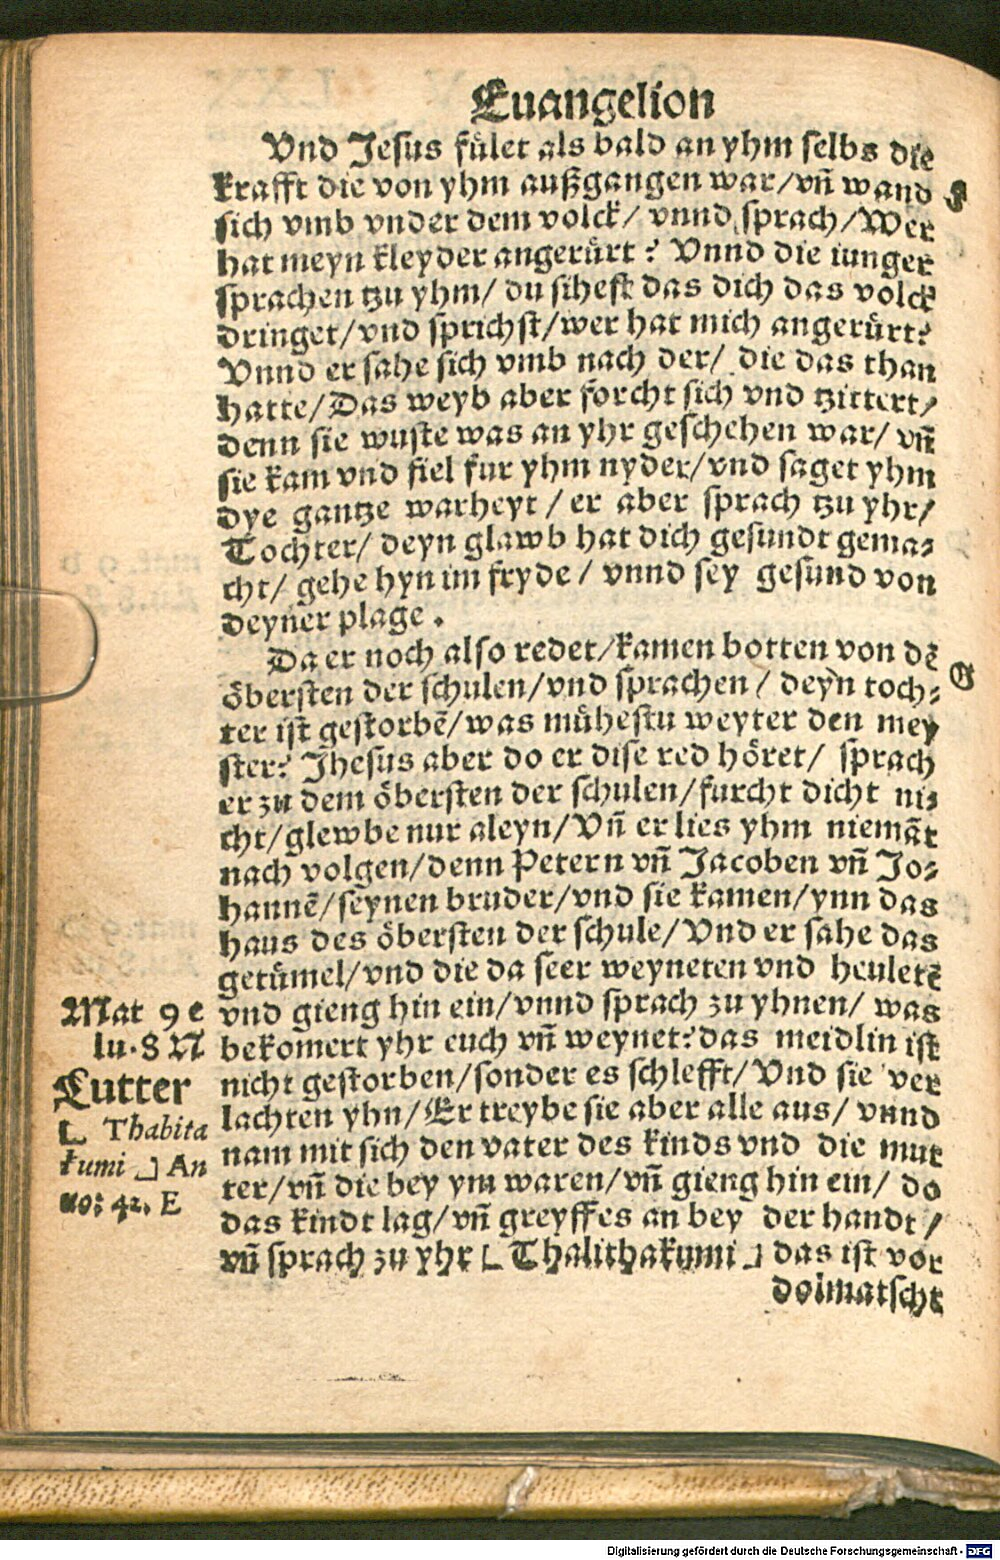 Euangelion
Vnd Jesus fület als bald an yhm selbs die
krafft die von yhm außgangen war/vñ wand
F
sich vmb vnder dem volck/ vnnd sprach/Wer
hat meyn kleyder angerürt? Vnnd die iunger
sprachen tzu yhm/ du sihest das dich das volck
dringet/vnd sprichst/wer hat mich angerürt?
Vnnd er sahe sich vmb nach der/ die das than
hatte/Das weyb aber forcht sich vnd tzittert/
denn sie wuste was an yhr geschehen war/ vñ
sie kam vnd fiel fur yhm nyder/vnd saget yhm
dye gantze warheyt / er aber sprach tzu yhr/
Tochter/ deyn glawb hat dich gesundt gema⸗
cht/ gehe hyn im fryde / vnnd sey gesund von
deyner plage.
Da er noch also redet/kamen botten von dē
öbersten der schulen/vnd sprachen/ deyn toch⸗
G
ter ist gestorbē/was mühestu weyter den mey
ster? Jhesus aber do er dise red höret/ sprach
er zu dem öbersten der schulen/furcht dicht ni⸗
cht/glewbe nur aleyn/Vñ er lies yhm niemāt
nach volgen/denn Petern vñ Jacoben vñ Jo⸗
hannē/seynen bruder/vnd sie kamen/ynn das
haus des öbersten der schule/Vnd er sahe das
getümel/vnd die da seer weyneten vnd heuletē
vnd gieng hin ein/vnnd sprach zu yhnen/ was
bekomert yhr euch vñ weynet? das meidlin ist
nicht gestorben/sonder es schlefft/Vnd sie ver
lachten yhn/Er treybe sie aber alle aus/ vnnd
nam mit sich den vater des kinds vnd die mut
ter/vñ die bey ym waren/vñ gieng hin ein/ do
das kindt lag/vñ greyffes an bey der handt /
vñ sprach zu yhr [Thalithakumi] das ist vor
dolmatscht
Mat 9 e
lu. 8 N
Lutter
[ Thabita
kumi ] An
no: 42. E
Digitalisierung gefördert durch die Deutsche Forschungsgemeinschaft - DFG